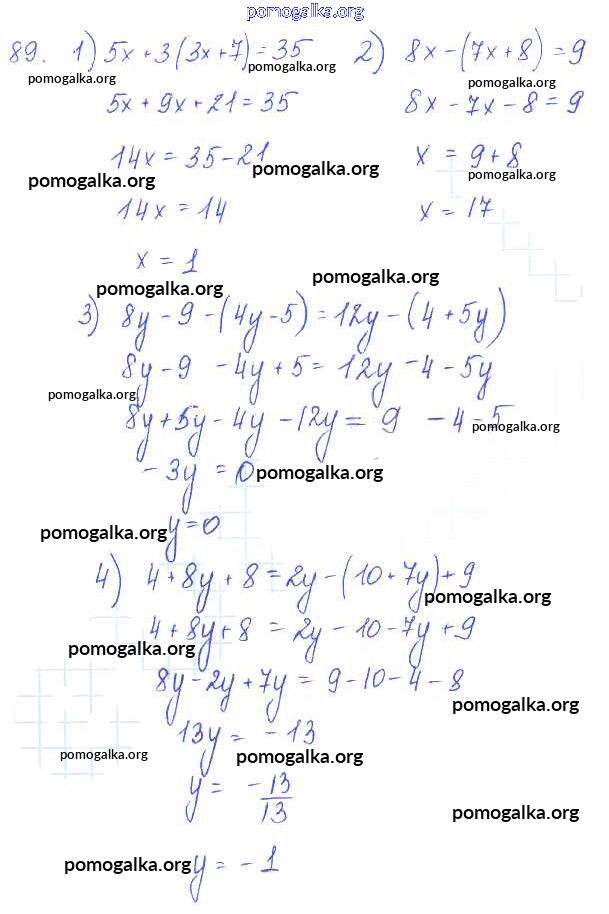 pomogalka.org
89. 1) 5x + 3(3x + 7) = 35 2) 8x - (7x + 8) = 9
pomogalka.org pomogalka.org pomogalka.org
5x + 9x + 21 = 35 8x - 7x - 8 = 9
14x = 35 - 21 x = 9 + 8
pomogalka.org pomogalka.org pomogalka.org
14x = 14 x = 17
x = 1
pomogalka.org pomogalka.org
3) 8y - 9 - (4y - 5) = 12y - (4 + 5y)
8y - 9 - 4y + 5 = 12y - 4 - 5y
pomogalka.org
8y + 5y - 4y - 12y = 9 - 4 - 5
pomogalka.org
- 3y = 0
pomogalka.org
y = 0
pomogalka.org
4) 4 + 8y + 8 = 2y - (10 + 7y) + 9
pomogalka.org
4 + 8y + 8 = 2y - 10 - 7y + 9
pomogalka.org
8y - 2y + 7y = 9 - 10 - 4 - 8
pomogalka.org
13y = - 13
pomogalka.org pomogalka.org
y = -13/13
pomogalka.org
y = - 1
pomogalka.org